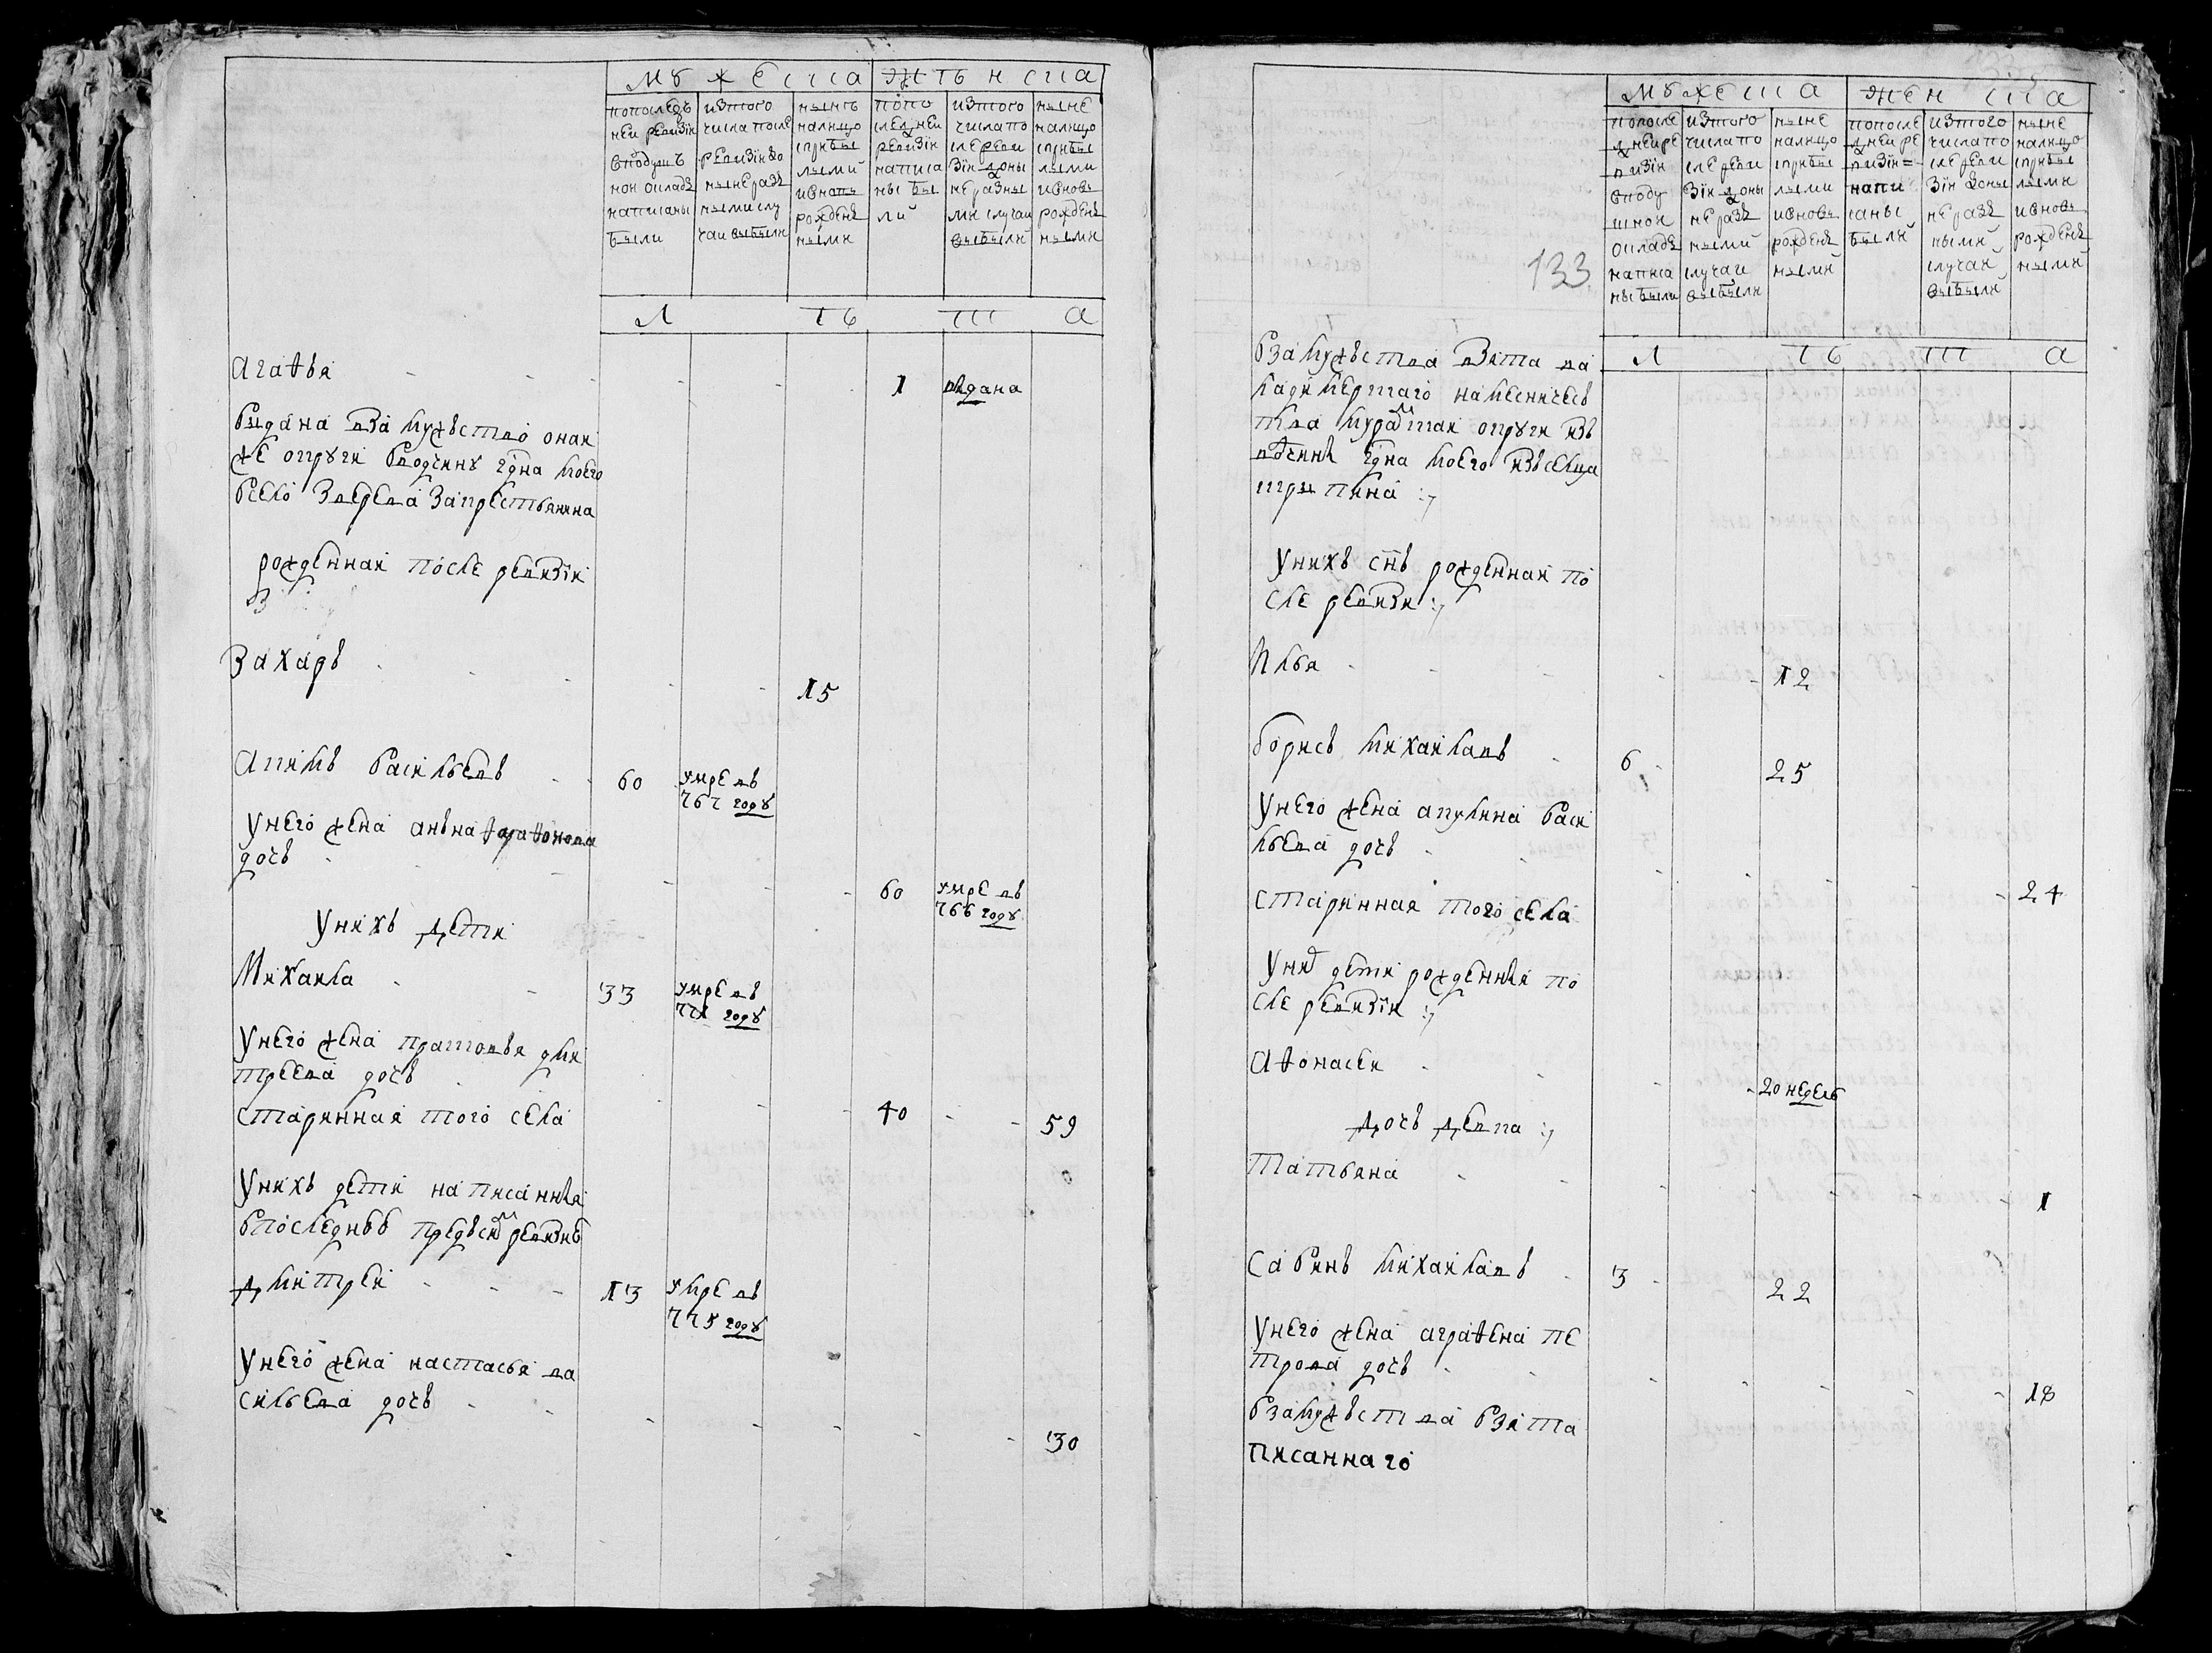 мужеска женска
по последъ
ней ревизiи
въ подушъ
ном окладе
написаны
были
из того
числа после
ревизiи
разъ
ными слу
чаи выбыли
ныне
налицо
с прибы
лыми
и вновь
рожден
ными
по по
следней
ревизiи
написа
ны бы
ли
из того
числа по
сле реви
зiи
разны
ми случаи
выбыли
ныне
налицо
с прибы
лыми
и вновь
рожден
ными
лета
агафья 1 выдана
выдана в замужество онаи
же округи в вотчину
в село зверева за крестьянина
рожденнаи после ревизiи
захаръ 15
акимъ васильевъ 60 умре въ
767 году
у него жена анъна
дочь 60 умре въ
766 году
у нихъ дети
михаила 33 умре въ
771 году
у него жена прасковья дми
треева дочь
старинная того села 40 59
у нихъ дети написанныя
в последнъй предъ сим ревизiи
дмитреи 13 умре въ
775 году
у него жена настасья ва
сильева дочь 30
133
мужеска женска
по после
дней ре
визiи
в поду
шном
окладе
написа
ны были
из того
числа по
сле реви
зiи
разъ
ными
случаи
выбыли
ныне
налицо
с прибы
лыми
и вновь
рожден
ными
по после
дней ре
визiи
напи
саны
были
из того
числа по
сле реви
зiи
разъ
ными
случаи
выбыли
ныне
налицо
с прибы
лыми
и вновь
рожден
ными
лета
в замужества взята ва
ладимерскаго намесничесъ
тва округи изъ
вотчины изъ сельца
у нихъ снъ рожденнаи по
сле ревизи
илья 12
борисъ михаилавъ 6 25
у него жена акулина васи
льева дочь
старинная того села 24
у них дети рожденныя по
сле ревизiи
афонасеи 20 недель
дочь девка
татьяна 1
савинъ михаилавъ 3 22
у него жена аграфена пе
трова дочь 18
в замужества взята
писаннаго